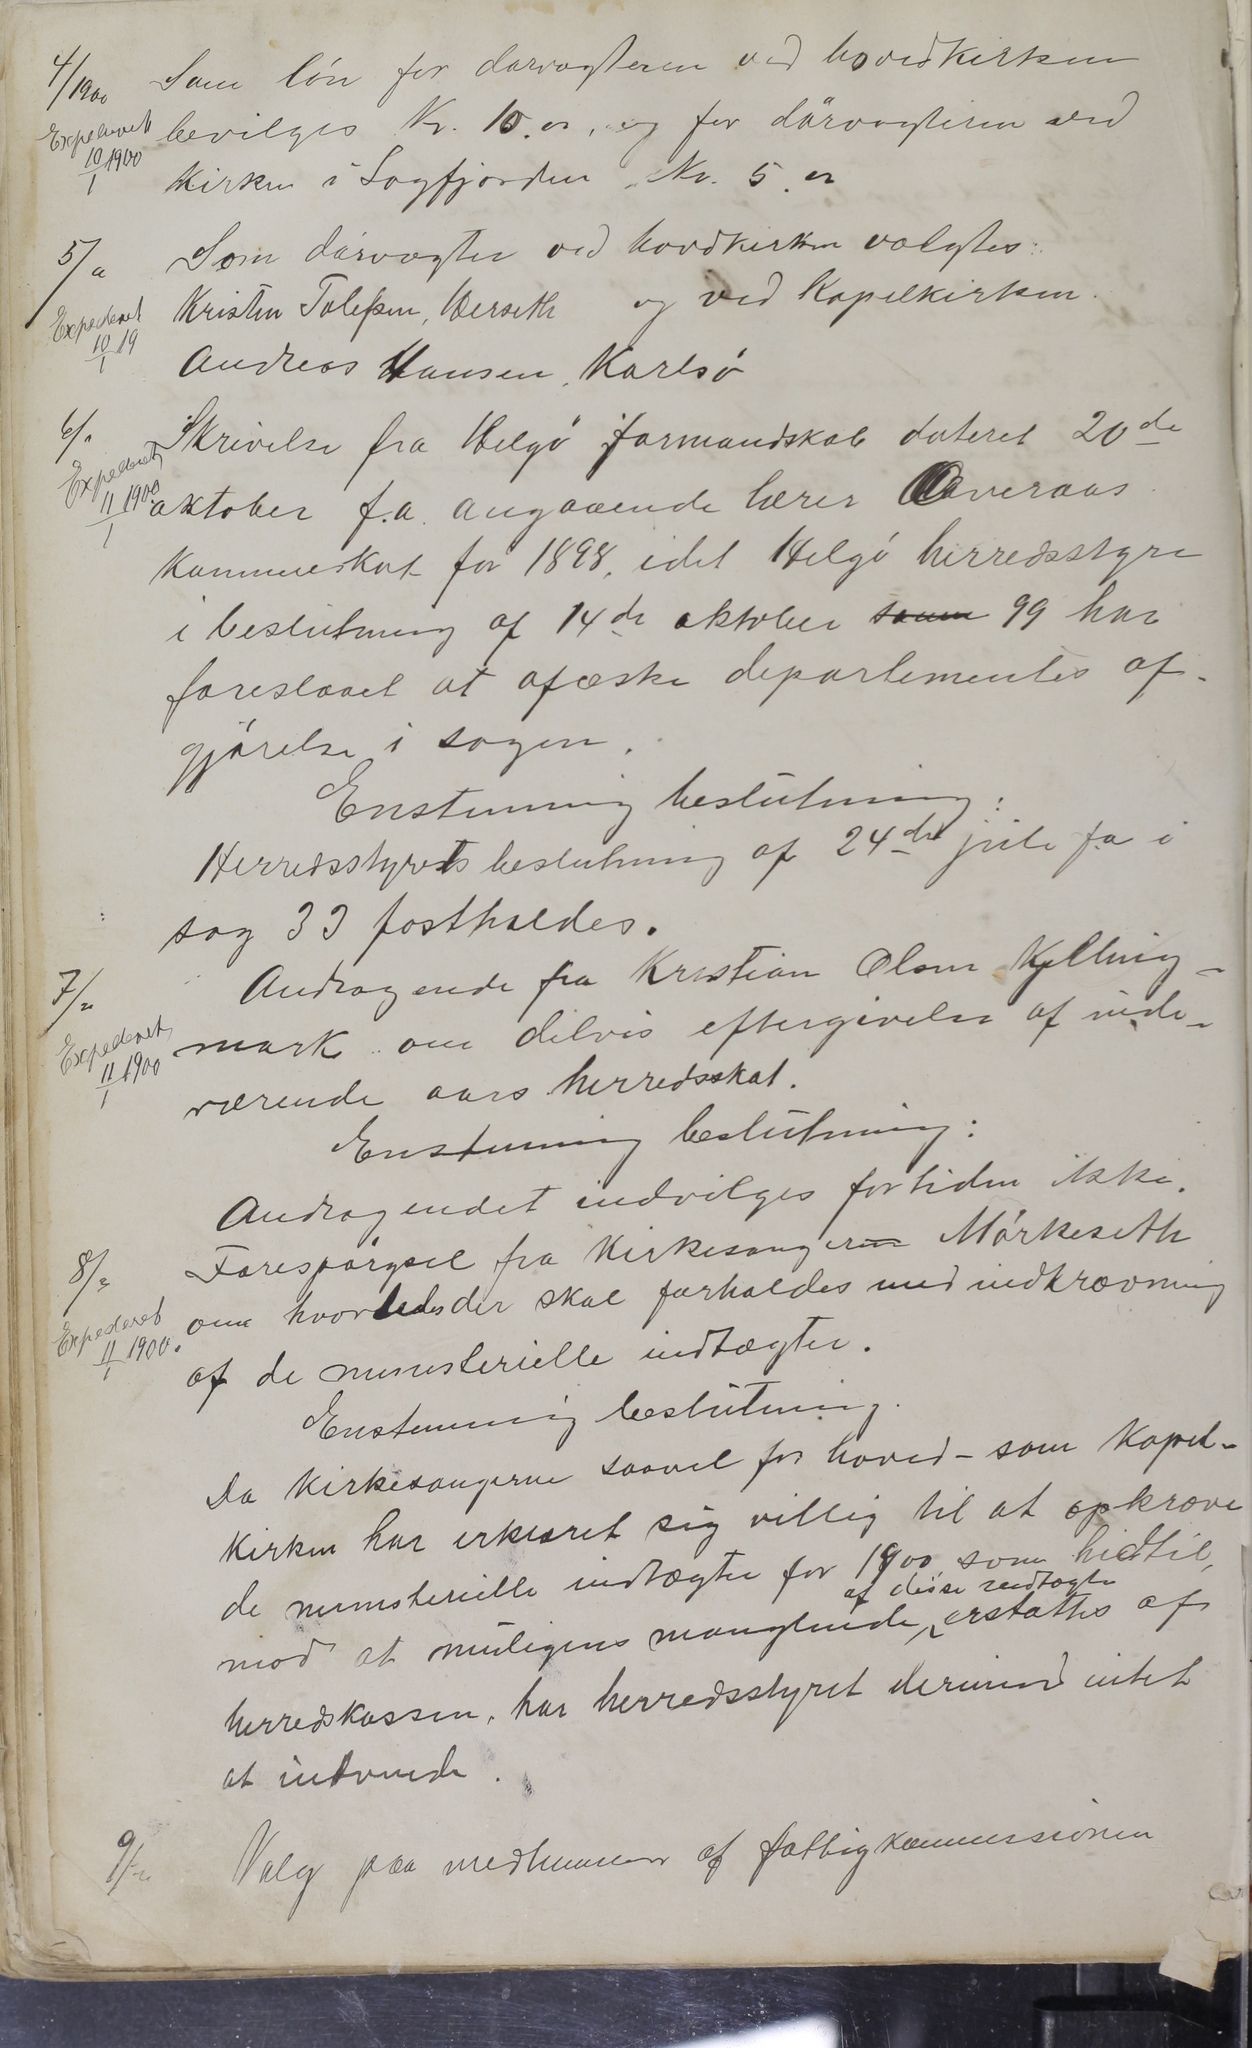 4/1900 Som lön for dørvagteren ved hovedkirken
Expederet bevilges Kr. 10.00, og for dørvagteren ved
10/1 1900 kirken i Sogfjorden Kr. 5.00
5/" Som dørvogter ved hovedkirken valgtes:
Expederet Kristen Tolefsen, Værseth og ved Kapelkirken
10/1 19 Andreas Hansen, Karlsö
6/" Skrivelse fra Helgö formandskab dateret 20de
Expederet 11/1 1900 oktober f.a. angaaende lærer Overaas
kommuneskat for 1898, idet Helgö herredsstyre
i beslutning af 14de oktober 99 har
foreslaaet at afæske departementes af-
gjörelse i sagen.
Enstemmig beslutning:
Herredsstyrets beslutning af 24de juli f.a i
sag 33 fastholdes.
7/" Andragende fra Kristian Olsen Kjelling-
Expederet mark om delvis eftergivelse af inde-
11/1 1900 værende aars herredsskat.
Enstemmig beslutning:
Andragendet indvilges fortiden ikke.
8/" Forespörgsel fra Kirkesanger Mörkeseth
Expederet om hvorledes der skal forholdes med indkrævning
11/1 1900. af de ministerielle indtægter.
Enstemmig beslutning.
Da Kirkesangerne saavel for hoved- som Kapel-
kirken har erklæret sig villig til at opkræve
de ministerielle indtægter for 1900 som hidtil,
af disse indtægte
mod at muligens manglende, erstattes af
herredskassen, har herredsstyret derimod intet
at indvende.
9/" Valg paa medlemmer af fattigkommissionen